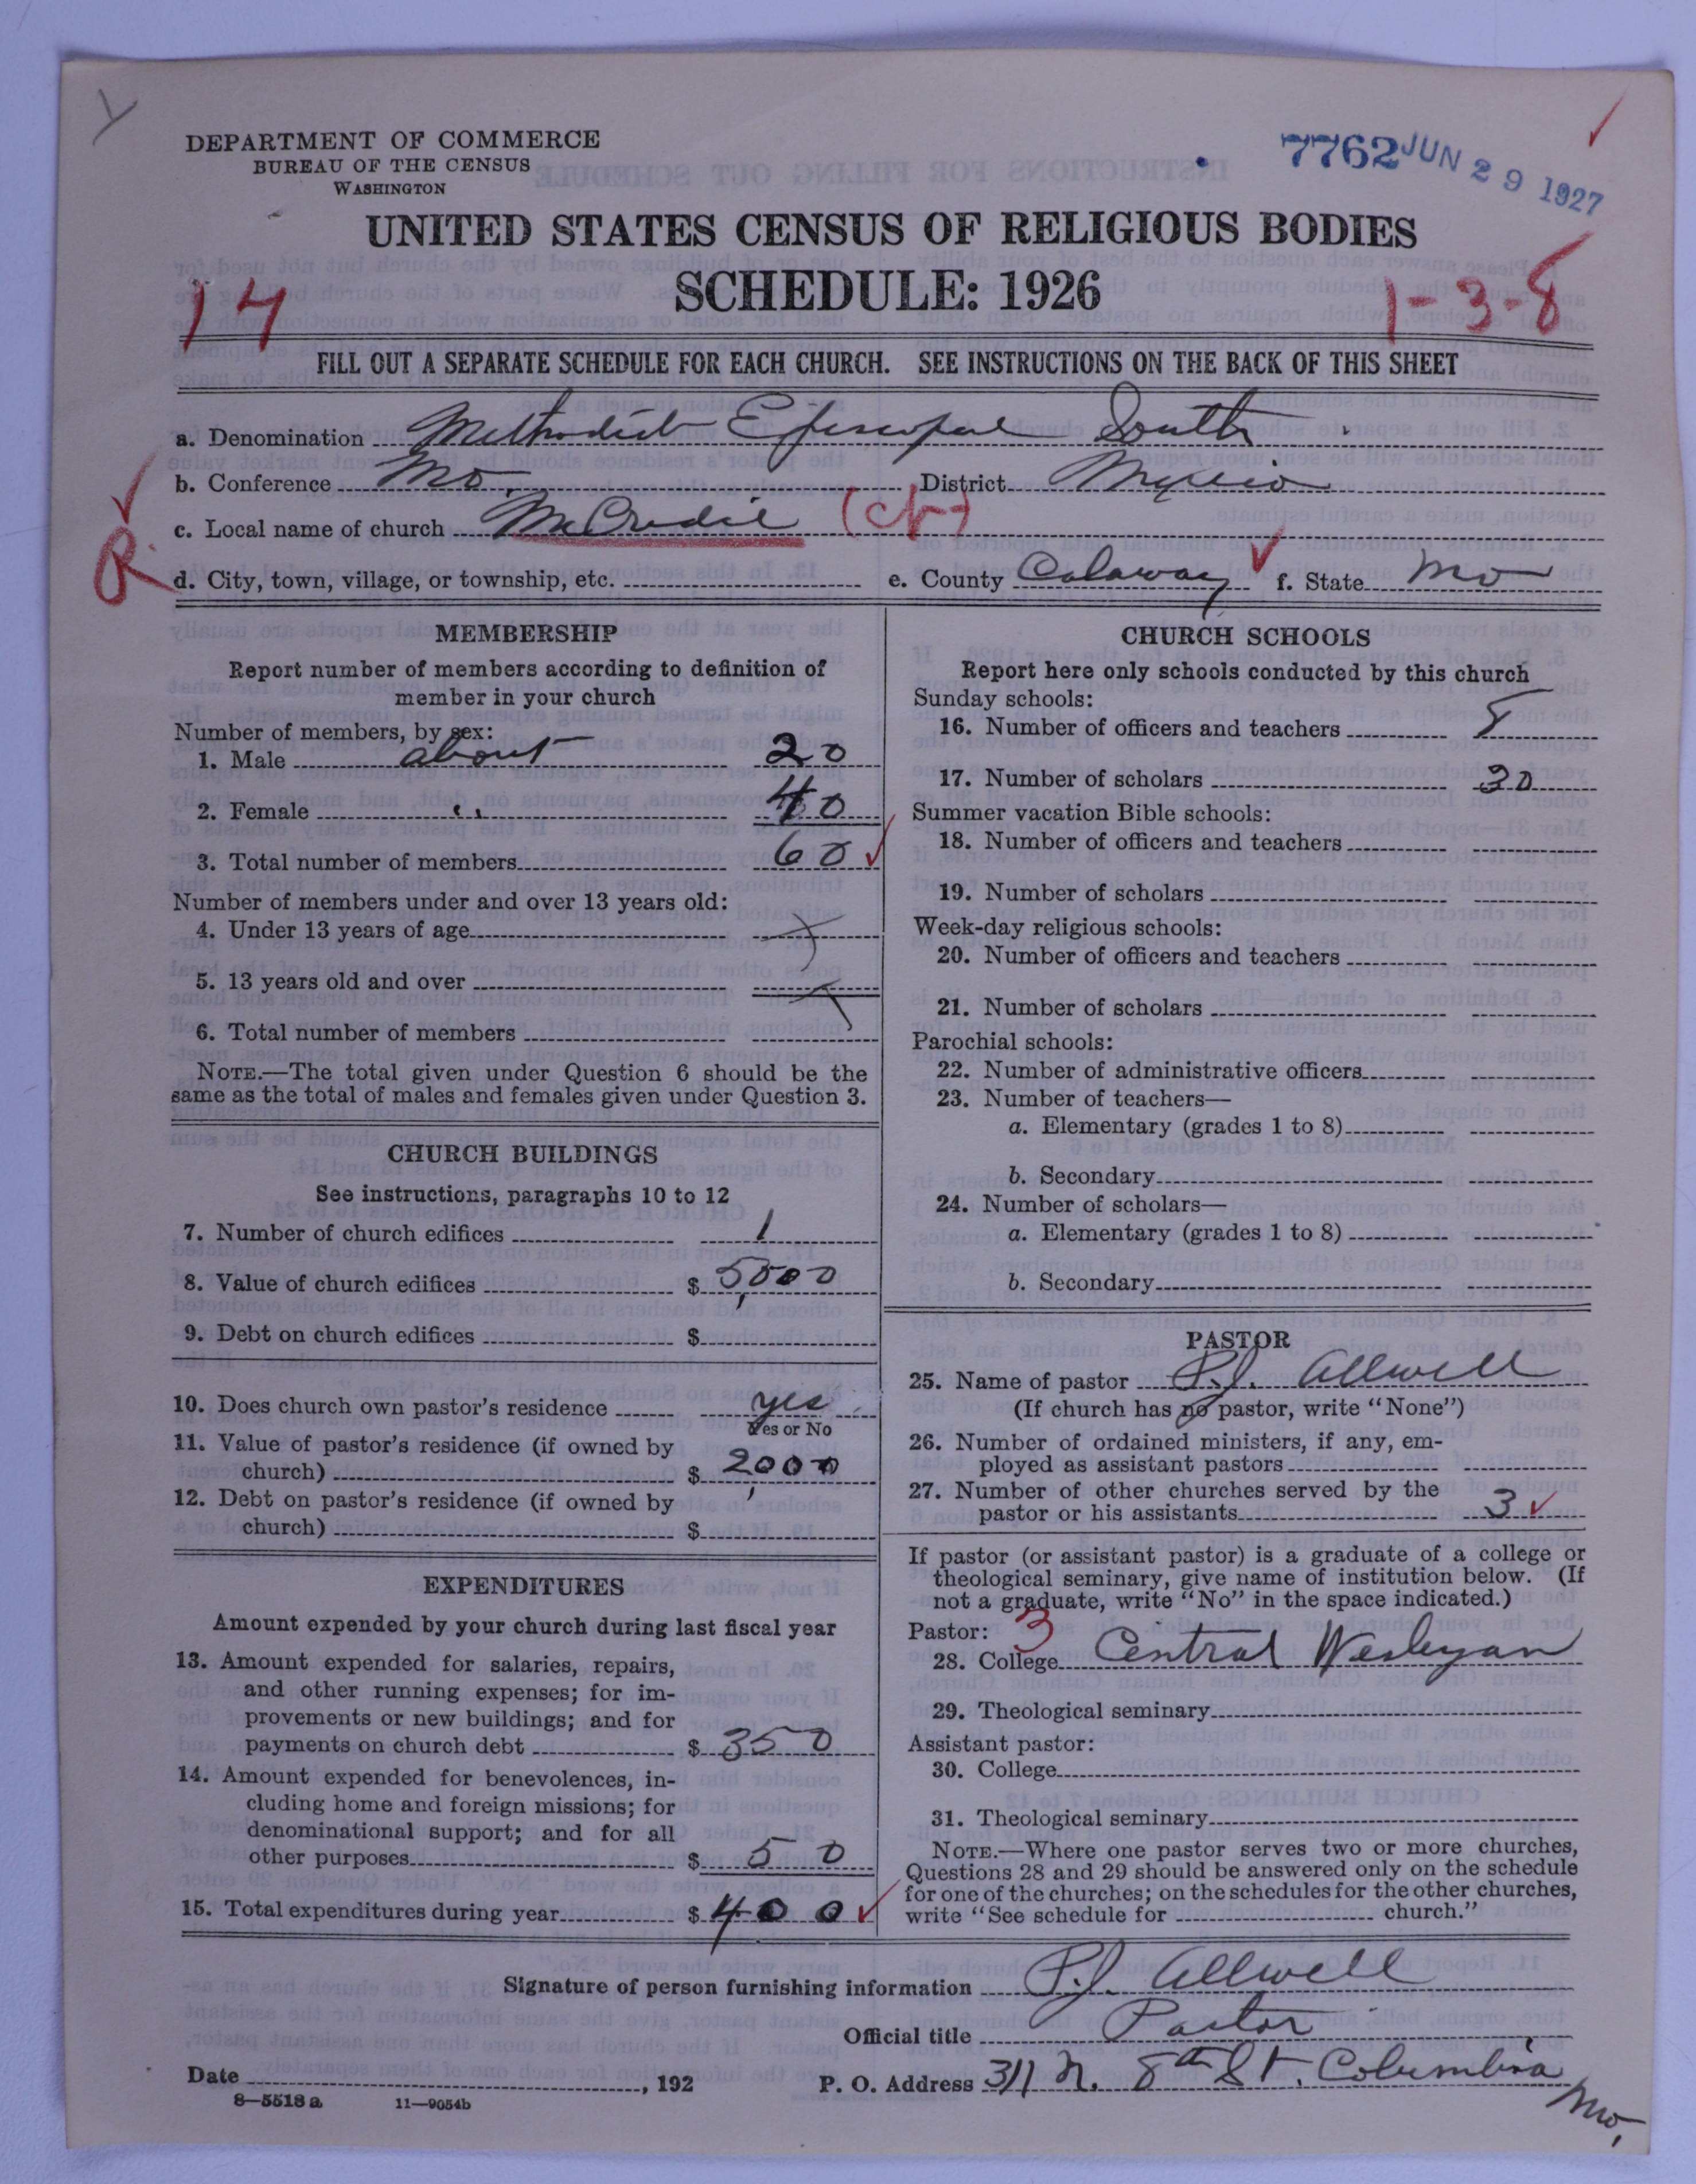 DEPARTMENT OF COMMERCE
BUREAU OF THE CENSUS
WASHINGTON
7762 JUN 29 1927
UNITED STATES CENSUS OF RELIGIOUS BODIES
SCHEDULE: 1926
14
1-3-8
FILL OUT A SEPARATE SCHEDULE FOR EACH CHURCH. SEE INSTRUCTIONS ON THE BACK OF THIS SHEET
a. Denomination Methodist Episcopal South
b. Conference Mo. District Mexico
c. Local name of church McCredie
R
d. City, town, village, or township, etc. e. County Calaway f. State Mo
MEMBERSHIP
Report number of members according to definition of
member in your church
Number of members, by sex:
1. Male about 20
2. Female " 40
3. Total number of members 60
Number of members under and over 13 years old:
4. Under 13 years of age
5. 13 years old and over
6. Total number of members
NOTE.—The total given under Question 6 should be the
same as the total of males and females given under Question 3.
CHURCH BUILDINGS
See instructions, paragraphs 10 to 12
7. Number of church edifices 1
8. Value of church edifices $ 5,000
9. Debt on church edifices $
10. Does church own pastor's residence yes
Yes or No
11. Value of pastor's residence (if owned by
church) $ 2,000
12. Debt on pastor's residence (if owned by
church) $
EXPENDITURES
Amount expended by your church during last fiscal year
13. Amount expended for salaries, repairs,
and other running expenses; for im-
provements or new buildings; and for
payments on church debt $ 350
14. Amount expended for benevolences, in-
cluding home and foreign missions; for
denominational support; and for all
other purposes $ 50
15. Total expenditures during year $ 400
CHURCH SCHOOLS
Report here only schools conducted by this church
Sunday schools:
16. Number of officers and teachers 8
17. Number of scholars 30
Summer vacation Bible schools:
18. Number of officers and teachers
19. Number of scholars
Week-day religious schools:
20. Number of officers and teachers
21. Number of scholars
Parochial schools:
22. Number of administrative officers
23. Number of teachers—
a. Elementary (grades 1 to 8)
b. Secondary
24. Number of scholars—
a. Elementary (grades 1 to 8)
b. Secondary
PASTOR
25. Name of pastor P.J. Allwell
(If church has no pastor, write "None")
26. Number of ordained ministers, if any, em-
ployed as assistant pastors
27. Number of other churches served by the
pastor or his assistants 3
If pastor (or assistant pastor) is a graduate of a college or
theological seminary, give name of institution below. (If
not a graduate, write "No" in the space indicated.)
Pastor: 3
28. College Central Wesleyan
29. Theological seminary
Assistant pastor:
30. College
31. Theological seminary
NOTE.—Where one pastor serves two or more churches,
Questions 28 and 29 should be answered only on the schedule
for one of the churches; on the schedules for the other churches,
write "See schedule for church."
Signature of person furnishing information P.J. Allwell
Official title Pastor
Date , 192 P. O. Address 311 N. 8th St. Columbia Mo,
8—5518 a 11—9054b